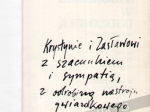 Krystynie i Zasławowi
z szacunkiem
i sympatią,
z odrobiną nastroju
gwiazdkowego